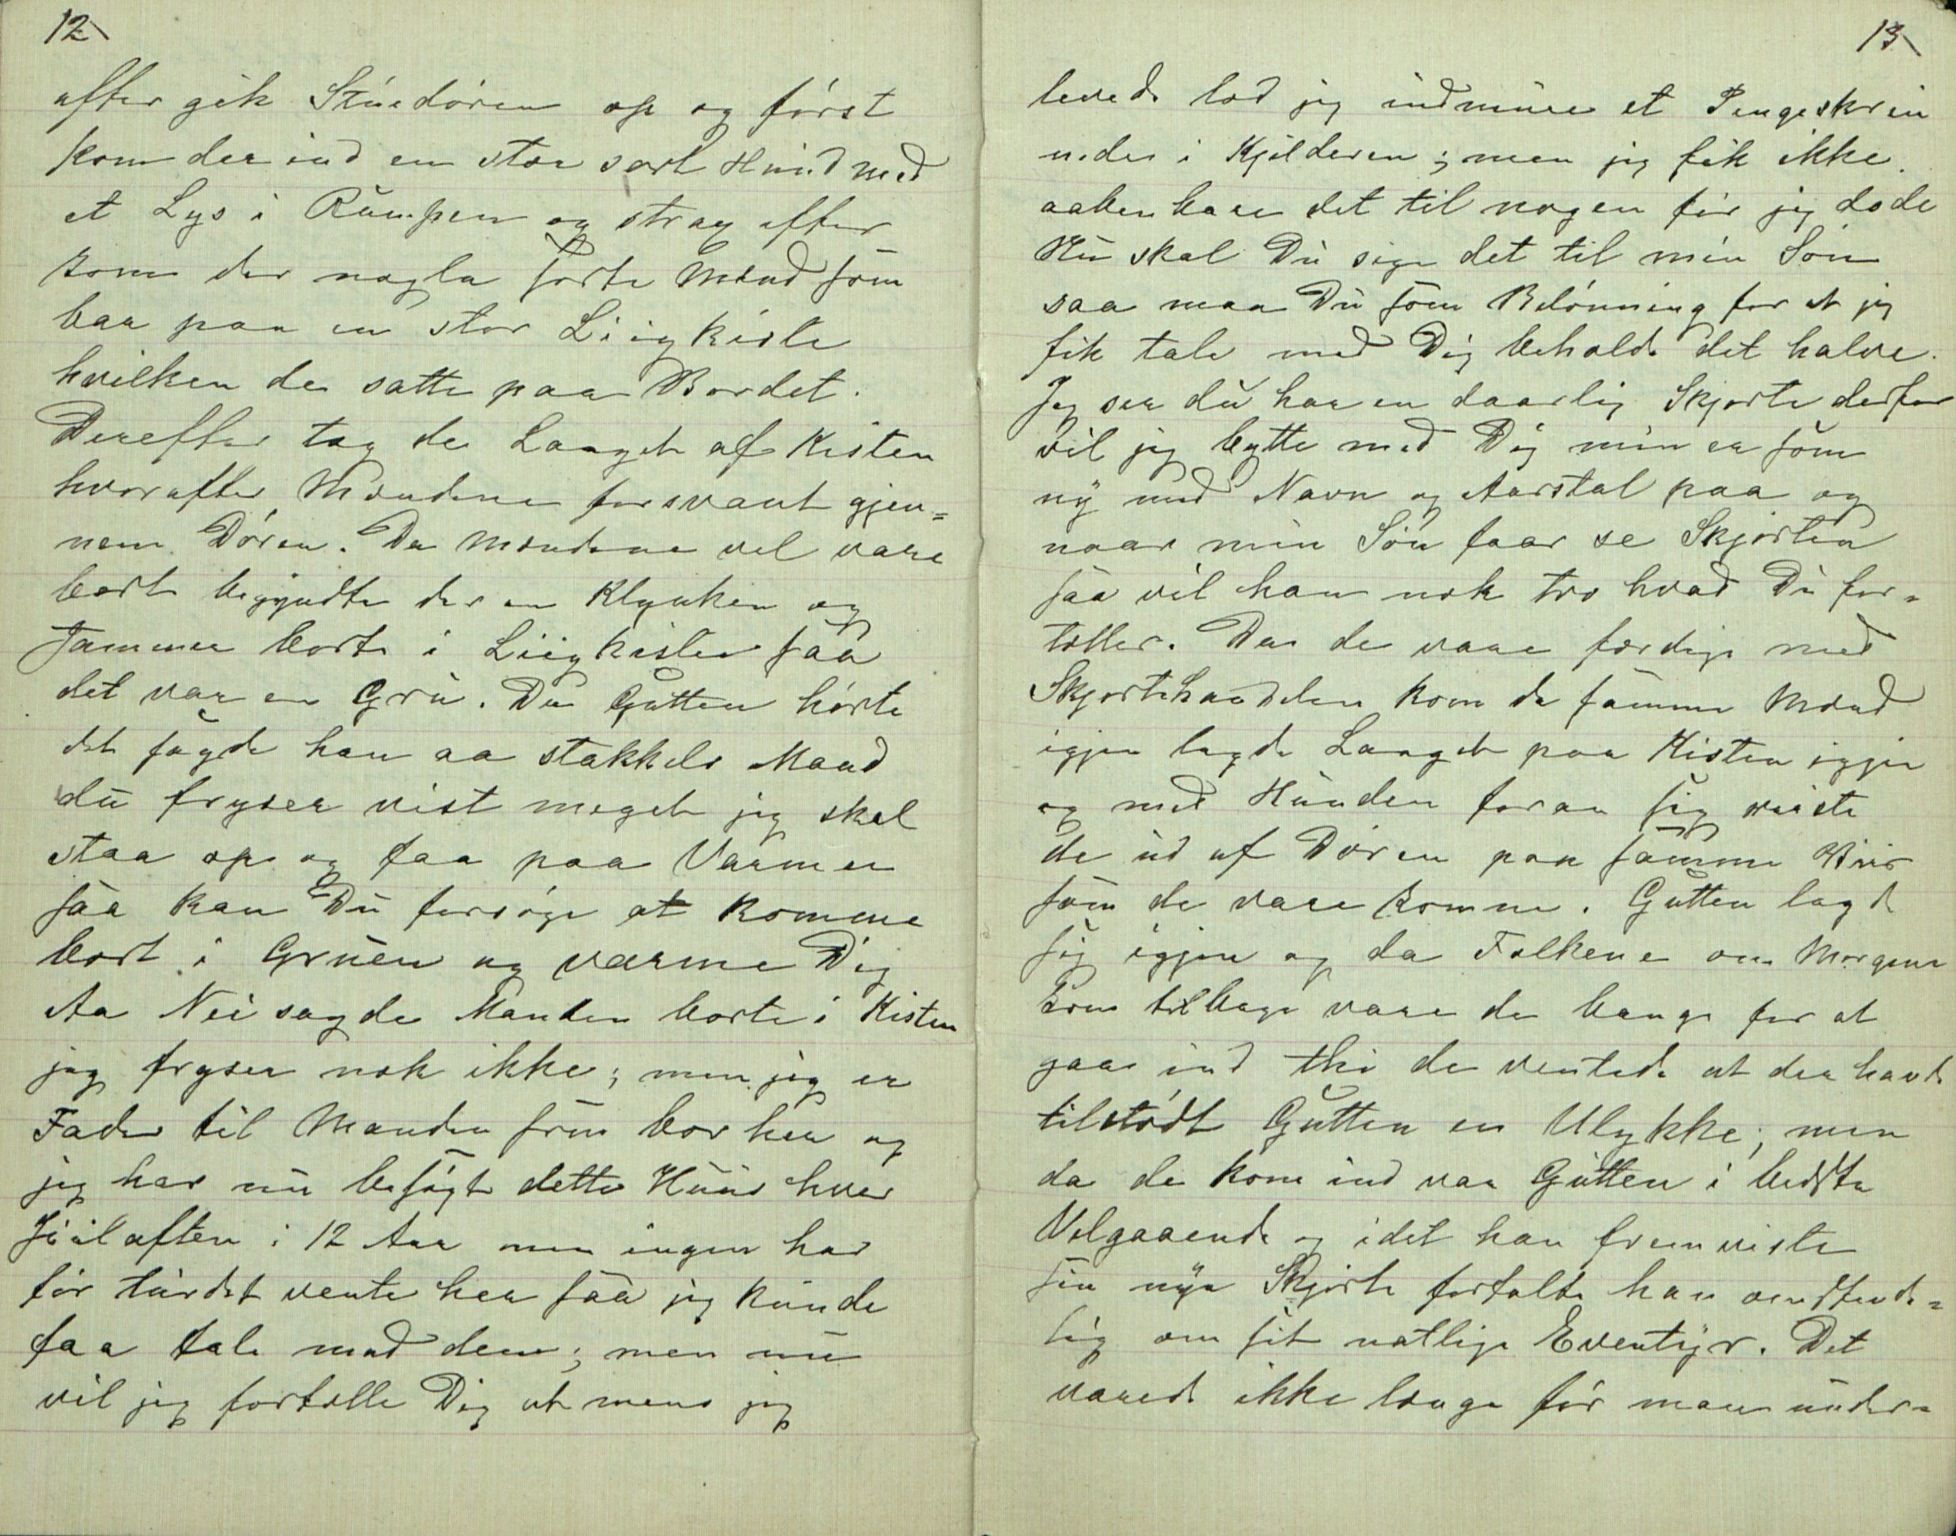 12
efter gik Stuedøren op og først
kom der ind en stor sort Hund med
et Lys i Rumpen og strax efter
kom der nogla sorte Mænd som
bar paa en stor Liigkiste
hvilken de satte paa Bordet.
Derefter tog de Laaget af Kisten
hvorefter Mændene forsvant gjen=
nem Døren. Da Mændene vel vare
bort begyndte der en Klynken og
Jammer borte i Liigkisten saa
det var en Gru. Da Gutten hørte
det sagde han aa stakkels Mand
du fryser vist meget jeg skal
staa op og faa paa Varmen
saa kan Du forsøge at komme
bort i Gruen og varme Dig
Aa Nei sagde Manden borte i Kisten
jeg fryser nok ikke; men jeg er
Fader til Manden som bor her og
jeg har nu besøgt dette Huus hver
Juilaften i 12 Aar men ingen har
før turdet vente her saa jeg kunde
faa tale med dem; men nu
vil jeg fortælle Dig at mens jeg
13
levede lod jeg indmure et Pengeskrin
neder i Kjelderen; men jeg fik ikke
aabenbare det til nogen før jeg døde
Nu skal Du sige det til min Søn
saa maa Du som Belønning for at jeg
fik tale med Dig beholde det halve.
Jeg ser du har en daarlig Skjorte derfor
vil jeg bytte med Dig min er som
ny med Navn og Aarstal paa og
naar min Søn faar se Skjorten
saa vil han nok tro hvad Du for=
tæller. Da de vare færdige med
Skjortehandelen kom de samme Mænd
igjen lagde Laaget paa Kisten igjen
og med Hunden foran sig reiste
de ud af Døren paa samme Viis
som de vare komne. Gutten lagde
sig igjen og da Folkene om Morgenen
kom tilbage vare de bange for at
gaa ind thi de ventede at der havde
tilstødt Gutten en Ulykke; men
da de kom ind var Gutten i bedste
Velgaaende og idet han fremviste
sin nye Skjorte fortalte han omstende=
lig om sit natlige Eventyr. Det
varede ikke længe før man under=